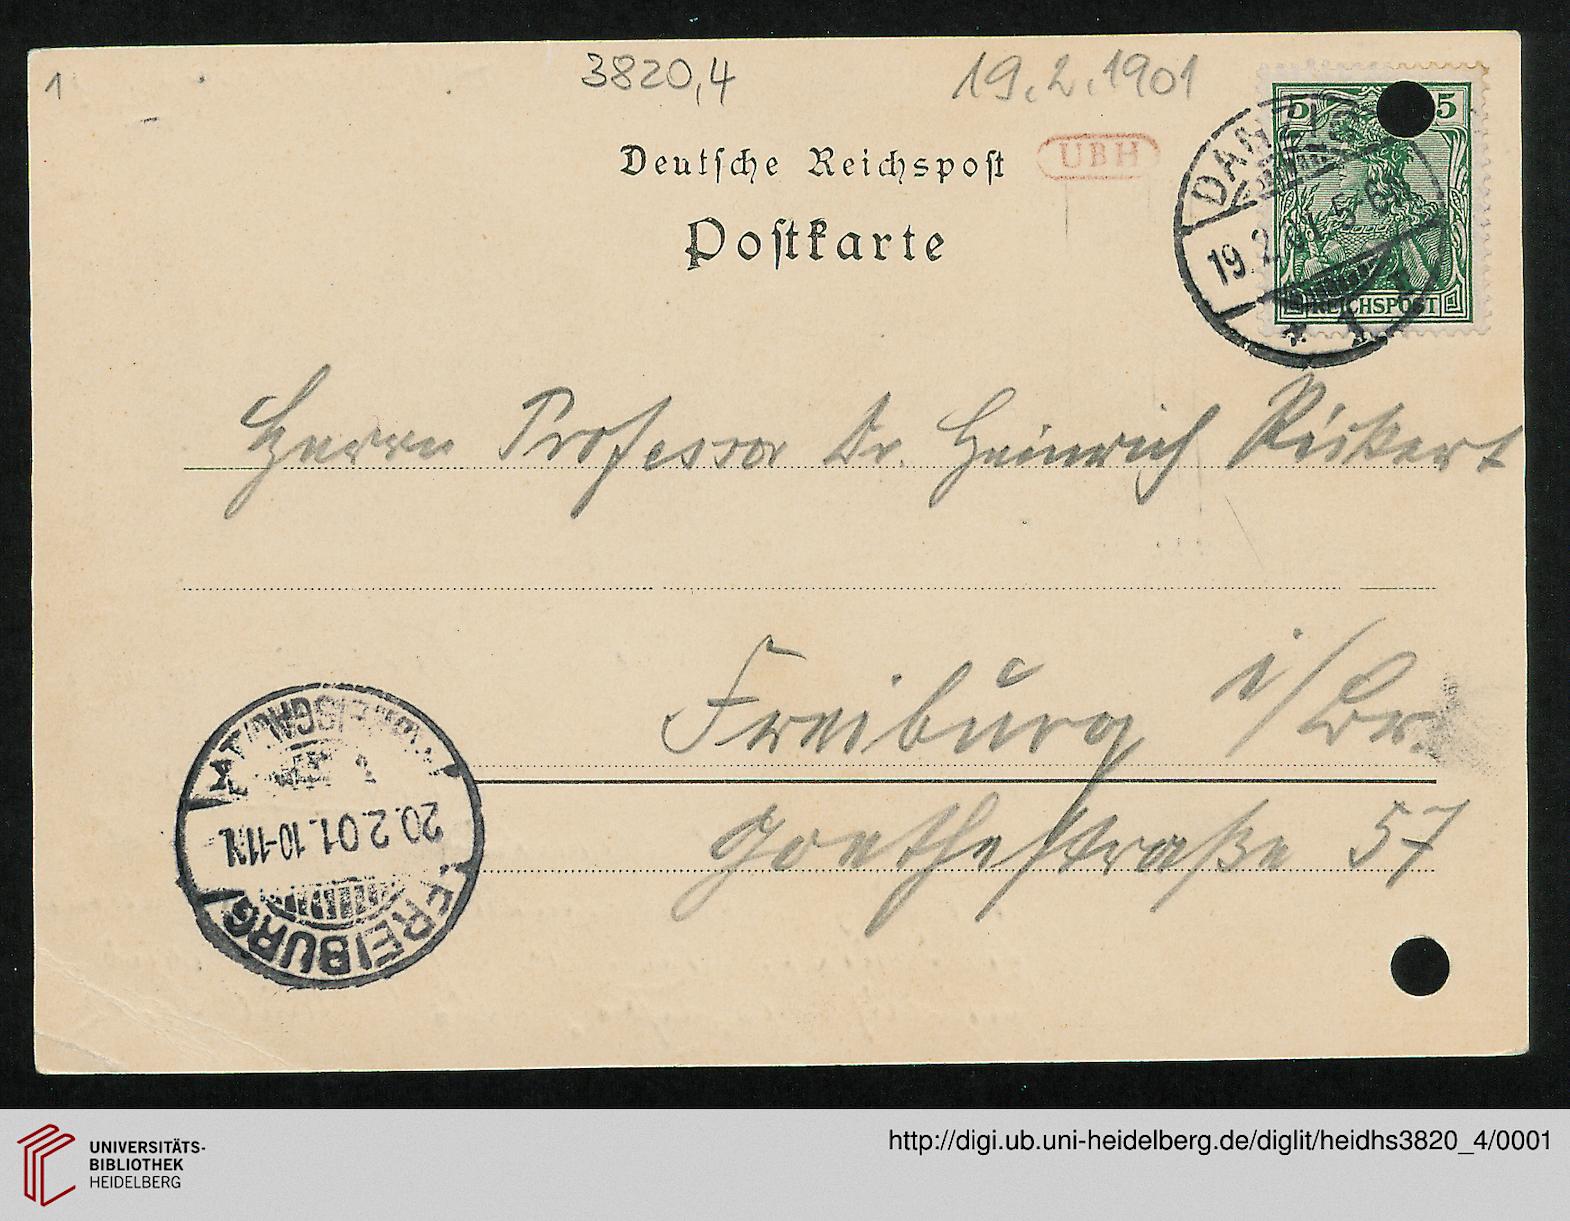 1
3820,4
19.2.1901
Deutſche Reichspost
UBH
Postkarte
5 5
REICHSPOST
DANZIG
19.2.01.5-6N
* 1
Herrn Professor Dr. Heinrich Rickert
Freiburg i/Br.
Goethestraße 57
FREIBURG
20.2.01.10-11V.
UNIVERSITÄTS-
BIBLIOTHEK
HEIDELBERG
http://digi.ub.uni-heidelberg.de/diglit/heidhs3820_4/0001